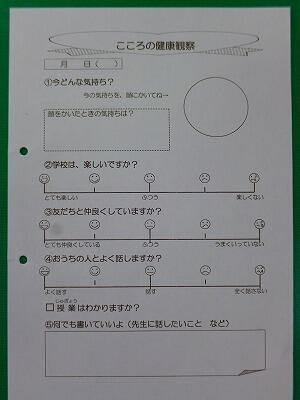 こころの健康観察
月 日( )
①今どんな気持ち?
今の気持ちを、顔にかいてね→
顔をかいたときの気持ちは?
②学校は、楽しいですか?
とても楽しい ふつう 楽しくない
③友だちと仲良くしていますか?
とても仲良くしている ふつう うまくいっていない
④おうちの人とよく話しますか?
よく話す 話す 全く話さない
じゅぎょう
□ 授業はわかりますか?
⑤何でも書いていいよ(先生に話したいこと など)